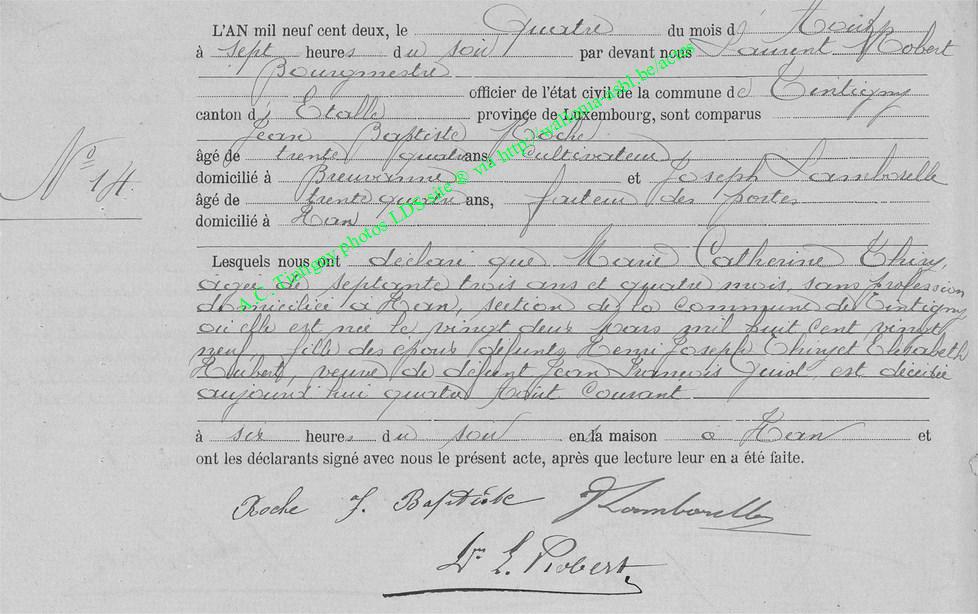 L'AN mil neuf cent deux, le Quatre du mois d' Août
à sept heures du soir par devant nous Laurent Robert
Bourgmestre
officier de l'état civil de la commune de Tintigny
canton d' Etalle province de Luxembourg, sont comparus
Jean Baptiste Roche
âgé de trente quatre ans, cultivateur
domicilié à Breuvanne et Joseph Lamborelle
âgé de trente quatre ans, facteur des postes
domicilié à Han
N° 14.
Lesquels nous ont déclaré que Marie Catherine Thiry,
âgée de septante trois ans et quatre mois, sans profession
domiciliée à Han, section de la commune de Tintigny
où elle est née le vingt deux mars mil huit cent vingt
neuf, fille des époux défunts Henri Joseph Thiry et Elisabeth
Hubert, veuve de défunt Jean François Guiot, est décédée
aujourd'hui quatre Août courant
à six heures du soir en sa maison à Han et
ont les déclarants signé avec nous le présent acte, après que lecture leur en a été faite.
Roche J. Baptiste J Lamborelle
Dr L. Robert
A.C. Tiangny photos LDS site ® via http://wallonia-asbl.be/actes